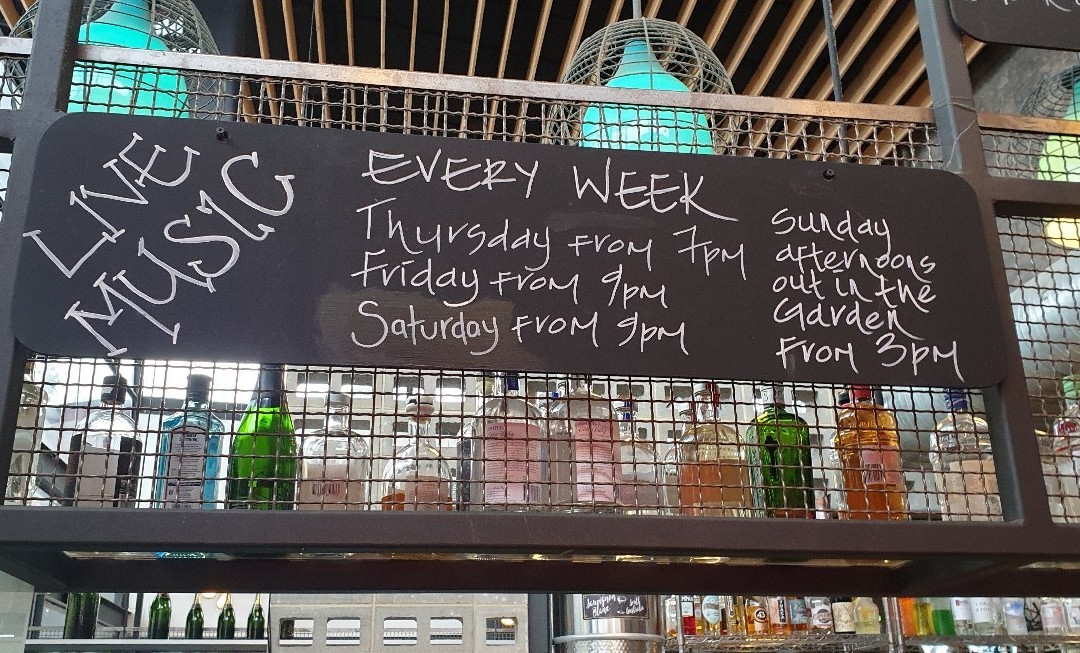 LIVE
MUSIC
EVERY WEEK
Thursday from 7pm
Friday from 9pm
Saturday from 9pm
Sunday
afternoons
out in the
Garden
From 3pm